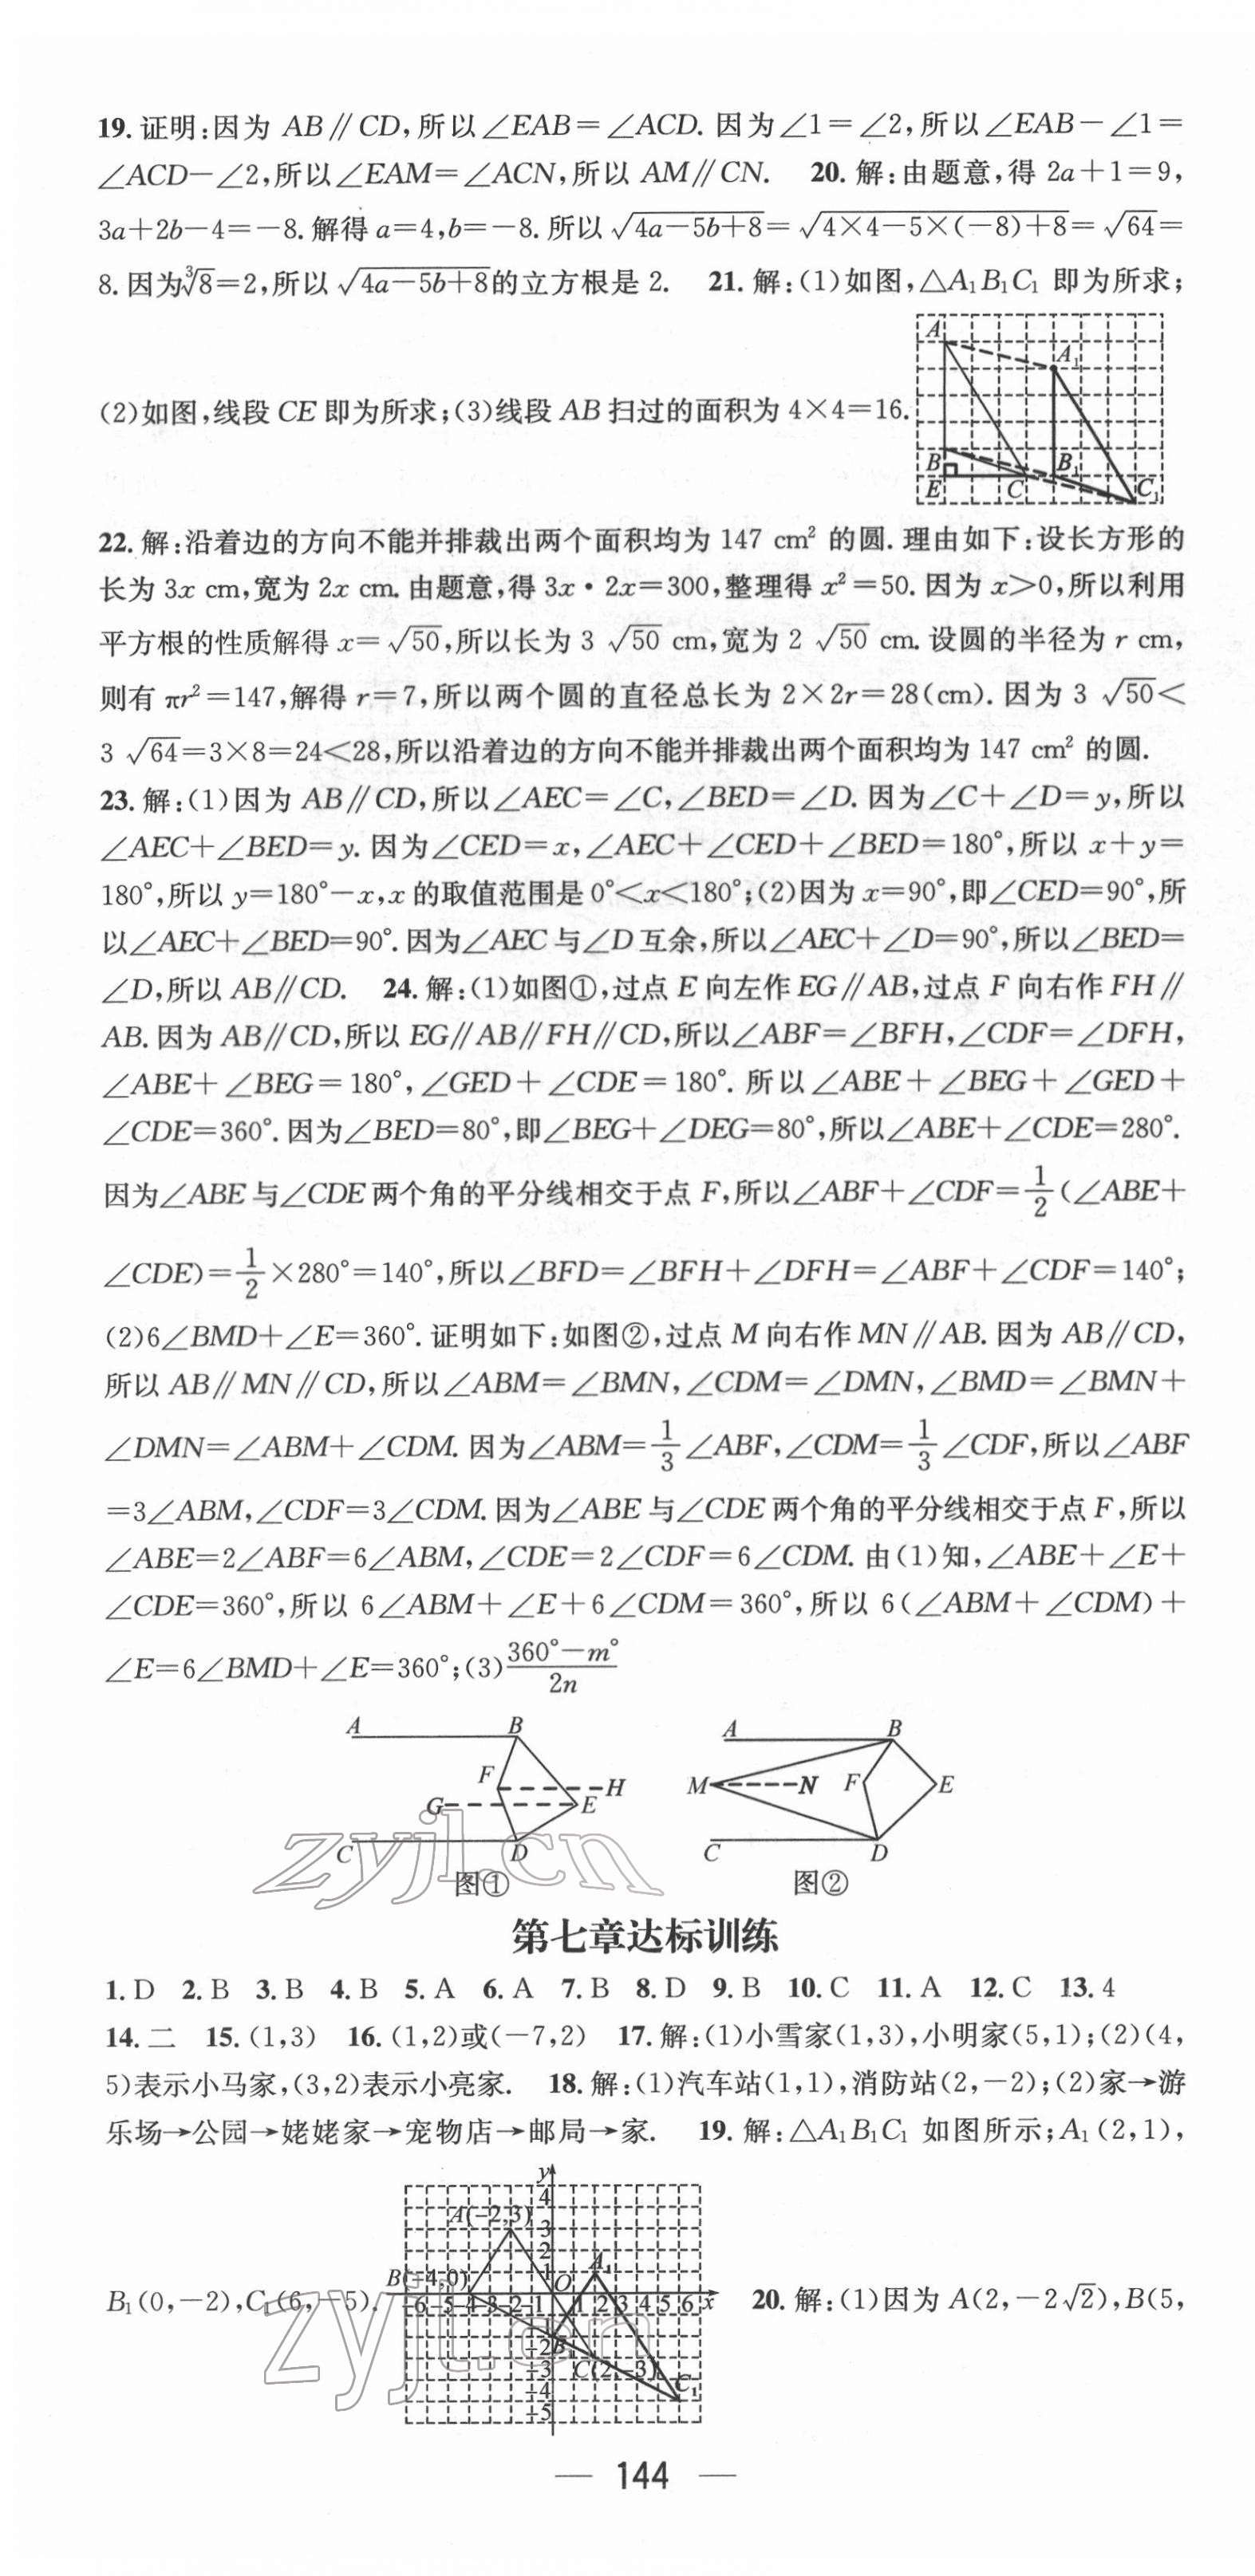 19. 证明:因为 AB∥CD,所以∠EAB=∠ACD. 因为∠1=∠2,所以∠EAB-∠1=
∠ACD-∠2,所以∠EAM=∠ACN,所以 AM∥CN. 20. 解:由题意,得 2a+1=9,
3a+2b-4=-8. 解得 a=4,b=-8. 所以 √(4a-5b+8)=√(4×4-5×(-8)+8)=√64=
8. 因为∛8=2,所以 √(4a-5b+8)的立方根是 2. 21. 解:(1)如图,△A₁B₁C₁ 即为所求;
(2)如图,线段 CE 即为所求;(3)线段 AB 扫过的面积为 4×4=16.
A
A₁
B
B₁
E
C
C₁
22. 解:沿着边的方向不能并排裁出两个面积均为 147 cm² 的圆. 理由如下:设长方形的
长为 3x cm,宽为 2x cm. 由题意,得 3x·2x=300,整理得 x²=50. 因为 x>0,所以利用
平方根的性质解得 x=√50,所以长为 3 √50 cm,宽为 2 √50 cm. 设圆的半径为 r cm,
则有 πr²=147,解得 r=7,所以两个圆的直径总长为 2×2r=28(cm). 因为 3 √50<
3 √64=3×8=24<28,所以沿着边的方向不能并排裁出两个面积均为 147 cm² 的圆.
23. 解:(1)因为 AB∥CD,所以∠AEC=∠C,∠BED=∠D. 因为∠C+∠D=y,所以
∠AEC+∠BED=y. 因为∠CED=x,∠AEC+∠CED+∠BED=180°,所以 x+y=
180°,所以 y=180°-x,x 的取值范围是 0°<x<180°;(2)因为 x=90°,即∠CED=90°,所
以∠AEC+∠BED=90°. 因为∠AEC 与∠D 互余,所以∠AEC+∠D=90°,所以∠BED=
∠D,所以 AB∥CD. 24. 解:(1)如图①,过点 E 向左作 EG∥AB,过点 F 向右作 FH∥
AB. 因为 AB∥CD,所以 EG∥AB∥FH∥CD,所以∠ABF=∠BFH,∠CDF=∠DFH,
∠ABE+∠BEG=180°,∠GED+∠CDE=180°. 所以∠ABE+∠BEG+∠GED+
∠CDE=360°. 因为∠BED=80°,即∠BEG+∠DEG=80°,所以∠ABE+∠CDE=280°.
因为∠ABE 与∠CDE 两个角的平分线相交于点 F,所以∠ABF+∠CDF=1/2(∠ABE+
∠CDE)=1/2×280°=140°,所以∠BFD=∠BFH+∠DFH=∠ABF+∠CDF=140°;
(2)6∠BMD+∠E=360°. 证明如下:如图②,过点 M 向右作 MN∥AB. 因为 AB∥CD,
所以 AB∥MN∥CD,所以∠ABM=∠BMN,∠CDM=∠DMN,∠BMD=∠BMN+
∠DMN=∠ABM+∠CDM. 因为∠ABM=1/3∠ABF,∠CDM=1/3∠CDF,所以∠ABF
=3∠ABM,∠CDF=3∠CDM. 因为∠ABE 与∠CDE 两个角的平分线相交于点 F,所以
∠ABE=2∠ABF=6∠ABM,∠CDE=2∠CDF=6∠CDM. 由(1)知,∠ABE+∠E+
∠CDE=360°,所以 6∠ABM+∠E+6∠CDM=360°,所以 6(∠ABM+∠CDM)+
∠E=6∠BMD+∠E=360°;(3)(360°-m°)/2n
A B F H G E C D
图①
A B M N F E C D
图②
zyjl.cn
第七章达标训练
1. D 2. B 3. B 4. B 5. A 6. A 7. B 8. D 9. B 10. C 11. A 12. C 13. 4
14. 二 15. (1,3) 16. (1,2)或(-7,2) 17. 解:(1)小雪家(1,3),小明家(5,1);(2)(4,
5)表示小马家,(3,2)表示小亮家. 18. 解:(1)汽车站(1,1),消防站(2,-2);(2)家→游
乐场→公园→姥姥家→宠物店→邮局→家. 19. 解:△A₁B₁C₁ 如图所示;A₁(2,1),
B₁(0,-2),C₁(6,-5). 20. 解:(1)因为 A(2,-2√2),B(5,
y
4
A(-2,3)
3
2
1
A₁
B(-4,0)
O
-6 -5 -4 -3 -2 -1 1 2 3 4 5 6 x
-2
B₁
-3
C(2,-3)
-4
C₁
-5
zyjl.cn
144